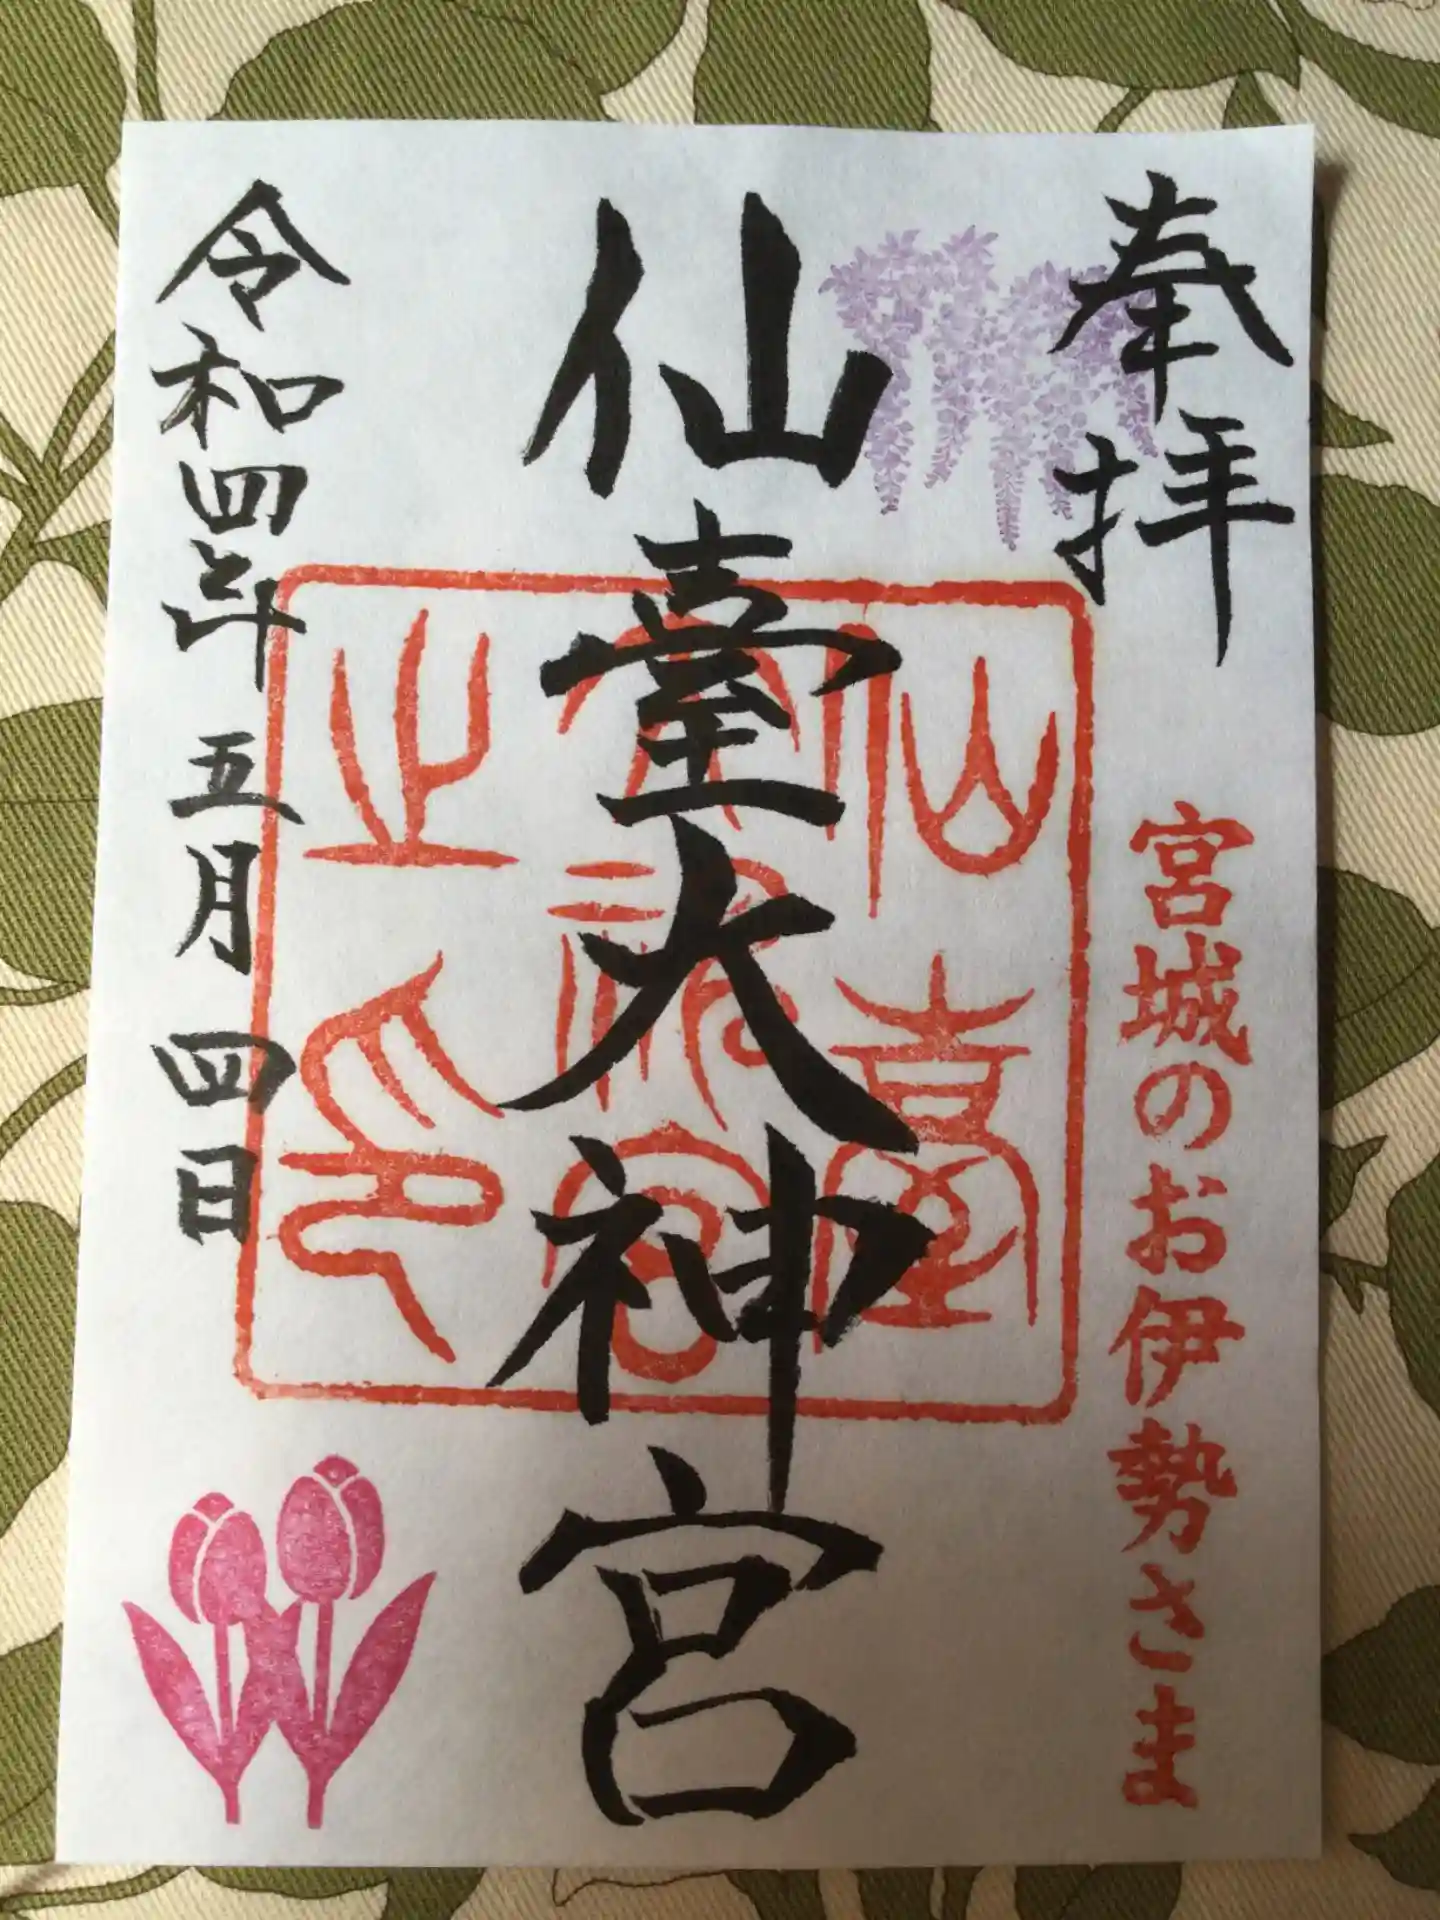 奉拝
宮城のお伊勢さま
仙臺大神宮
仙臺大神宮之印
令和四年五月四日